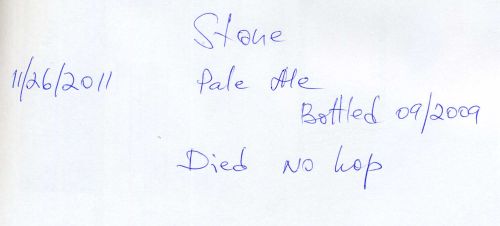 Stone
11/26/2011 Pale Ale
Bottled 09/2009
Died no hop